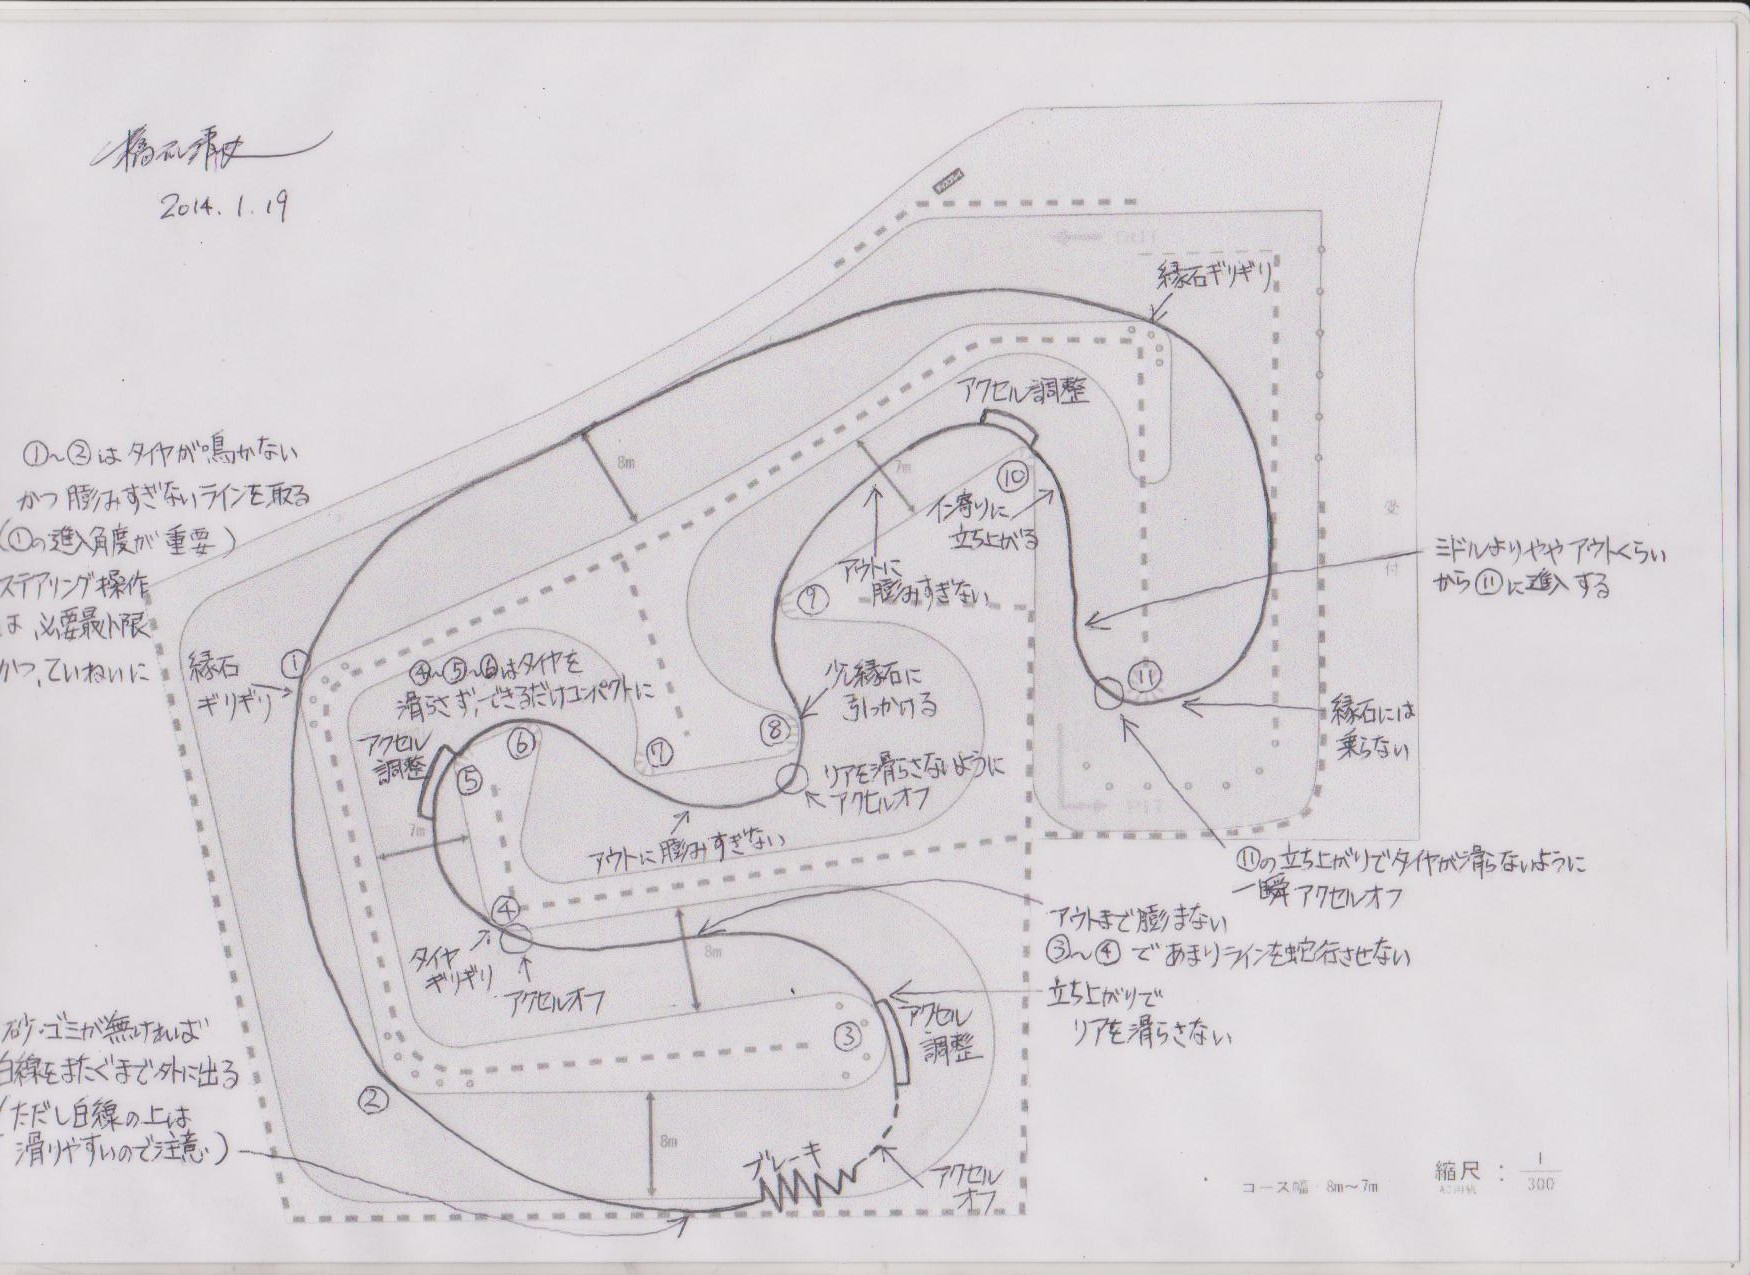 2014.1.19
縁石ギリギリ
アクセル調整
8m
7m
①～②はタイヤが鳴かない
かつ膨みすぎないラインを取る
(①の進入角度が重要)
ステアリング操作
は必要最小限
かつ、ていねいに
⑩
イン寄りに
立ち上がる
受
付
ミドルよりややアウトくらい
から⑪に進入する
アウトに
膨みすぎない
⑨
①
縁石
ギリギリ
④～⑤～⑥はタイヤを
滑らさず、できるだけコンパクトに
少し縁石に
引っかける
⑪
縁石には
乗らない
アクセル
調整
⑥
⑦
⑧
⑤
リアを滑らさないように
アクセルオフ
7m
アウトに膨みすぎない
⑪の立ち上がりでタイヤが滑らないように
一瞬アクセルオフ
④
アウトまで膨まない
③～④であまりラインを蛇行させない
8m
タイヤ
ギリギリ
アクセルオフ
立ち上がりで
リアを滑らさない
③
アクセル
調整
砂・ゴミが無ければ
白線をまたぐまで外に出る
(ただし白線の上は
滑りやすいので注意)
②
8m
ブレーキ
アクセル
オフ
コース幅 8m～7m
縮尺：1/300